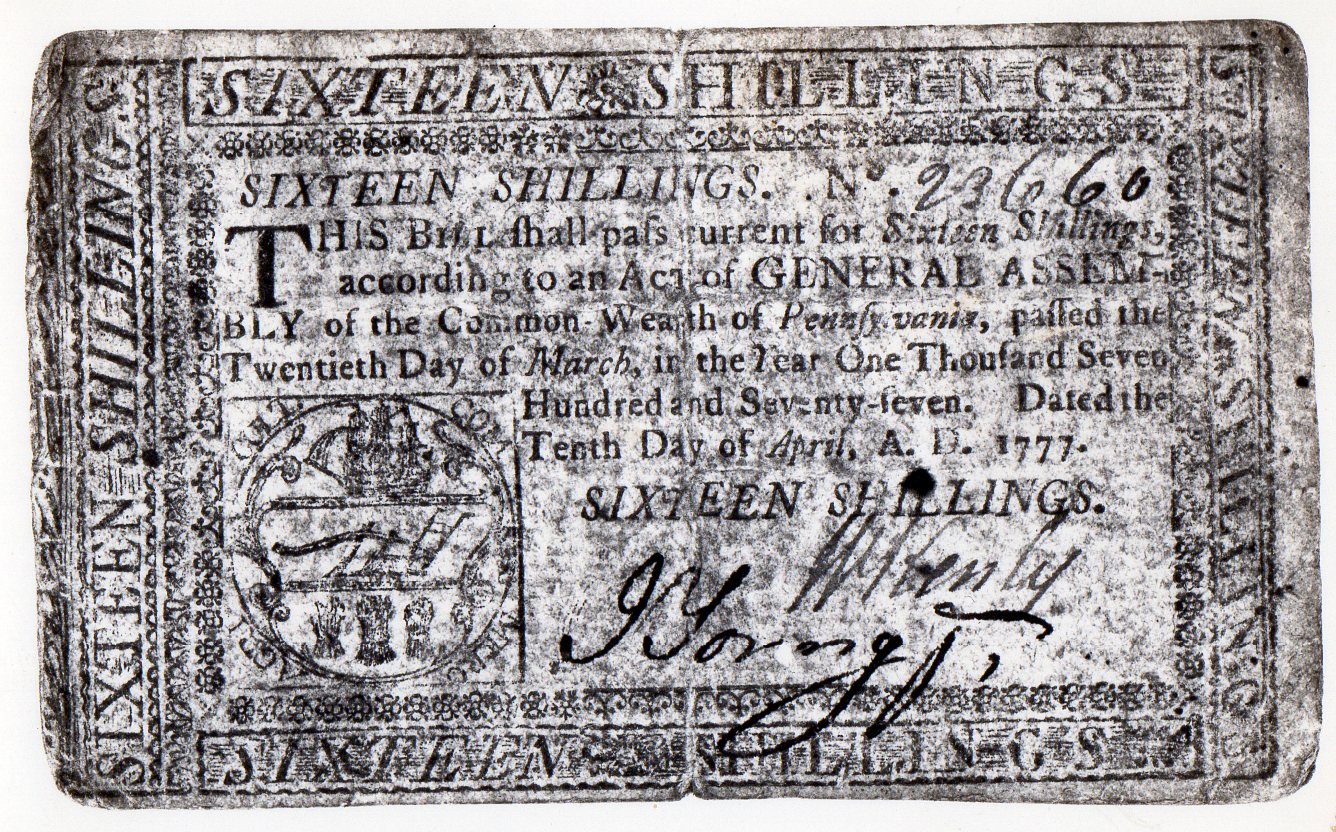 SIXTEEN SHILLINGS
SIXTEEN SHILLINGS
SIXTEEN SHILLINGS. Nº. 23660
THIS BILL ſhall paſs current for Sixteen Shillings,
according to an Act of GENERAL ASSEM-
BLY of the Common-Wealth of Pennſylvania, paſſed the
Twentieth Day of March, in the Year One Thouſand Seven
Hundred and Seventy-ſeven. Dated the
Tenth Day of April, A. D. 1777.
SIXTEEN SHILLINGS.
J Young Jr
SIXTEEN SHILLINGS
SIXTEEN SHILLINGS